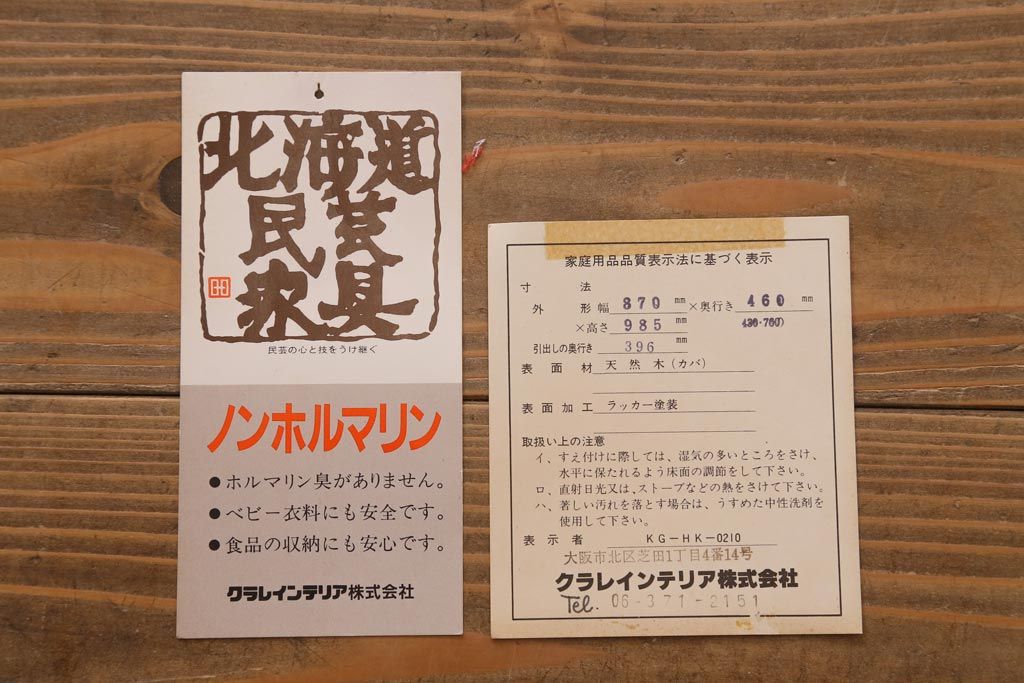 北海道
民芸
家具
民芸の心と技をうけ継ぐ
ノンホルマリン
●ホルマリン臭がありません。
●ベビー衣料にも安全です。
●食品の収納にも安心です。
クラレインテリア株式会社
家庭用品品質表示法に基づく表示
寸法
外形幅 870 mm ×奥行き 460 mm
×高さ 985 mm (430・760)
引出しの奥行き 396 mm
表面材 天然木(カバ)
表面加工 ラッカー塗装
取扱い上の注意
イ、すえ付けに際しては、湿気の多いところをさけ、
水平に保たれるよう床面の調節をして下さい。
ロ、直射日光又は、ストーブなどの熱をさけて下さい。
ハ、著しい汚れを落とす場合は、うすめた中性洗剤を
使用して下さい。
表示者 KG-HK-0210
大阪市北区芝田1丁目4番14号
クラレインテリア株式会社
Tel. 06-371-2151